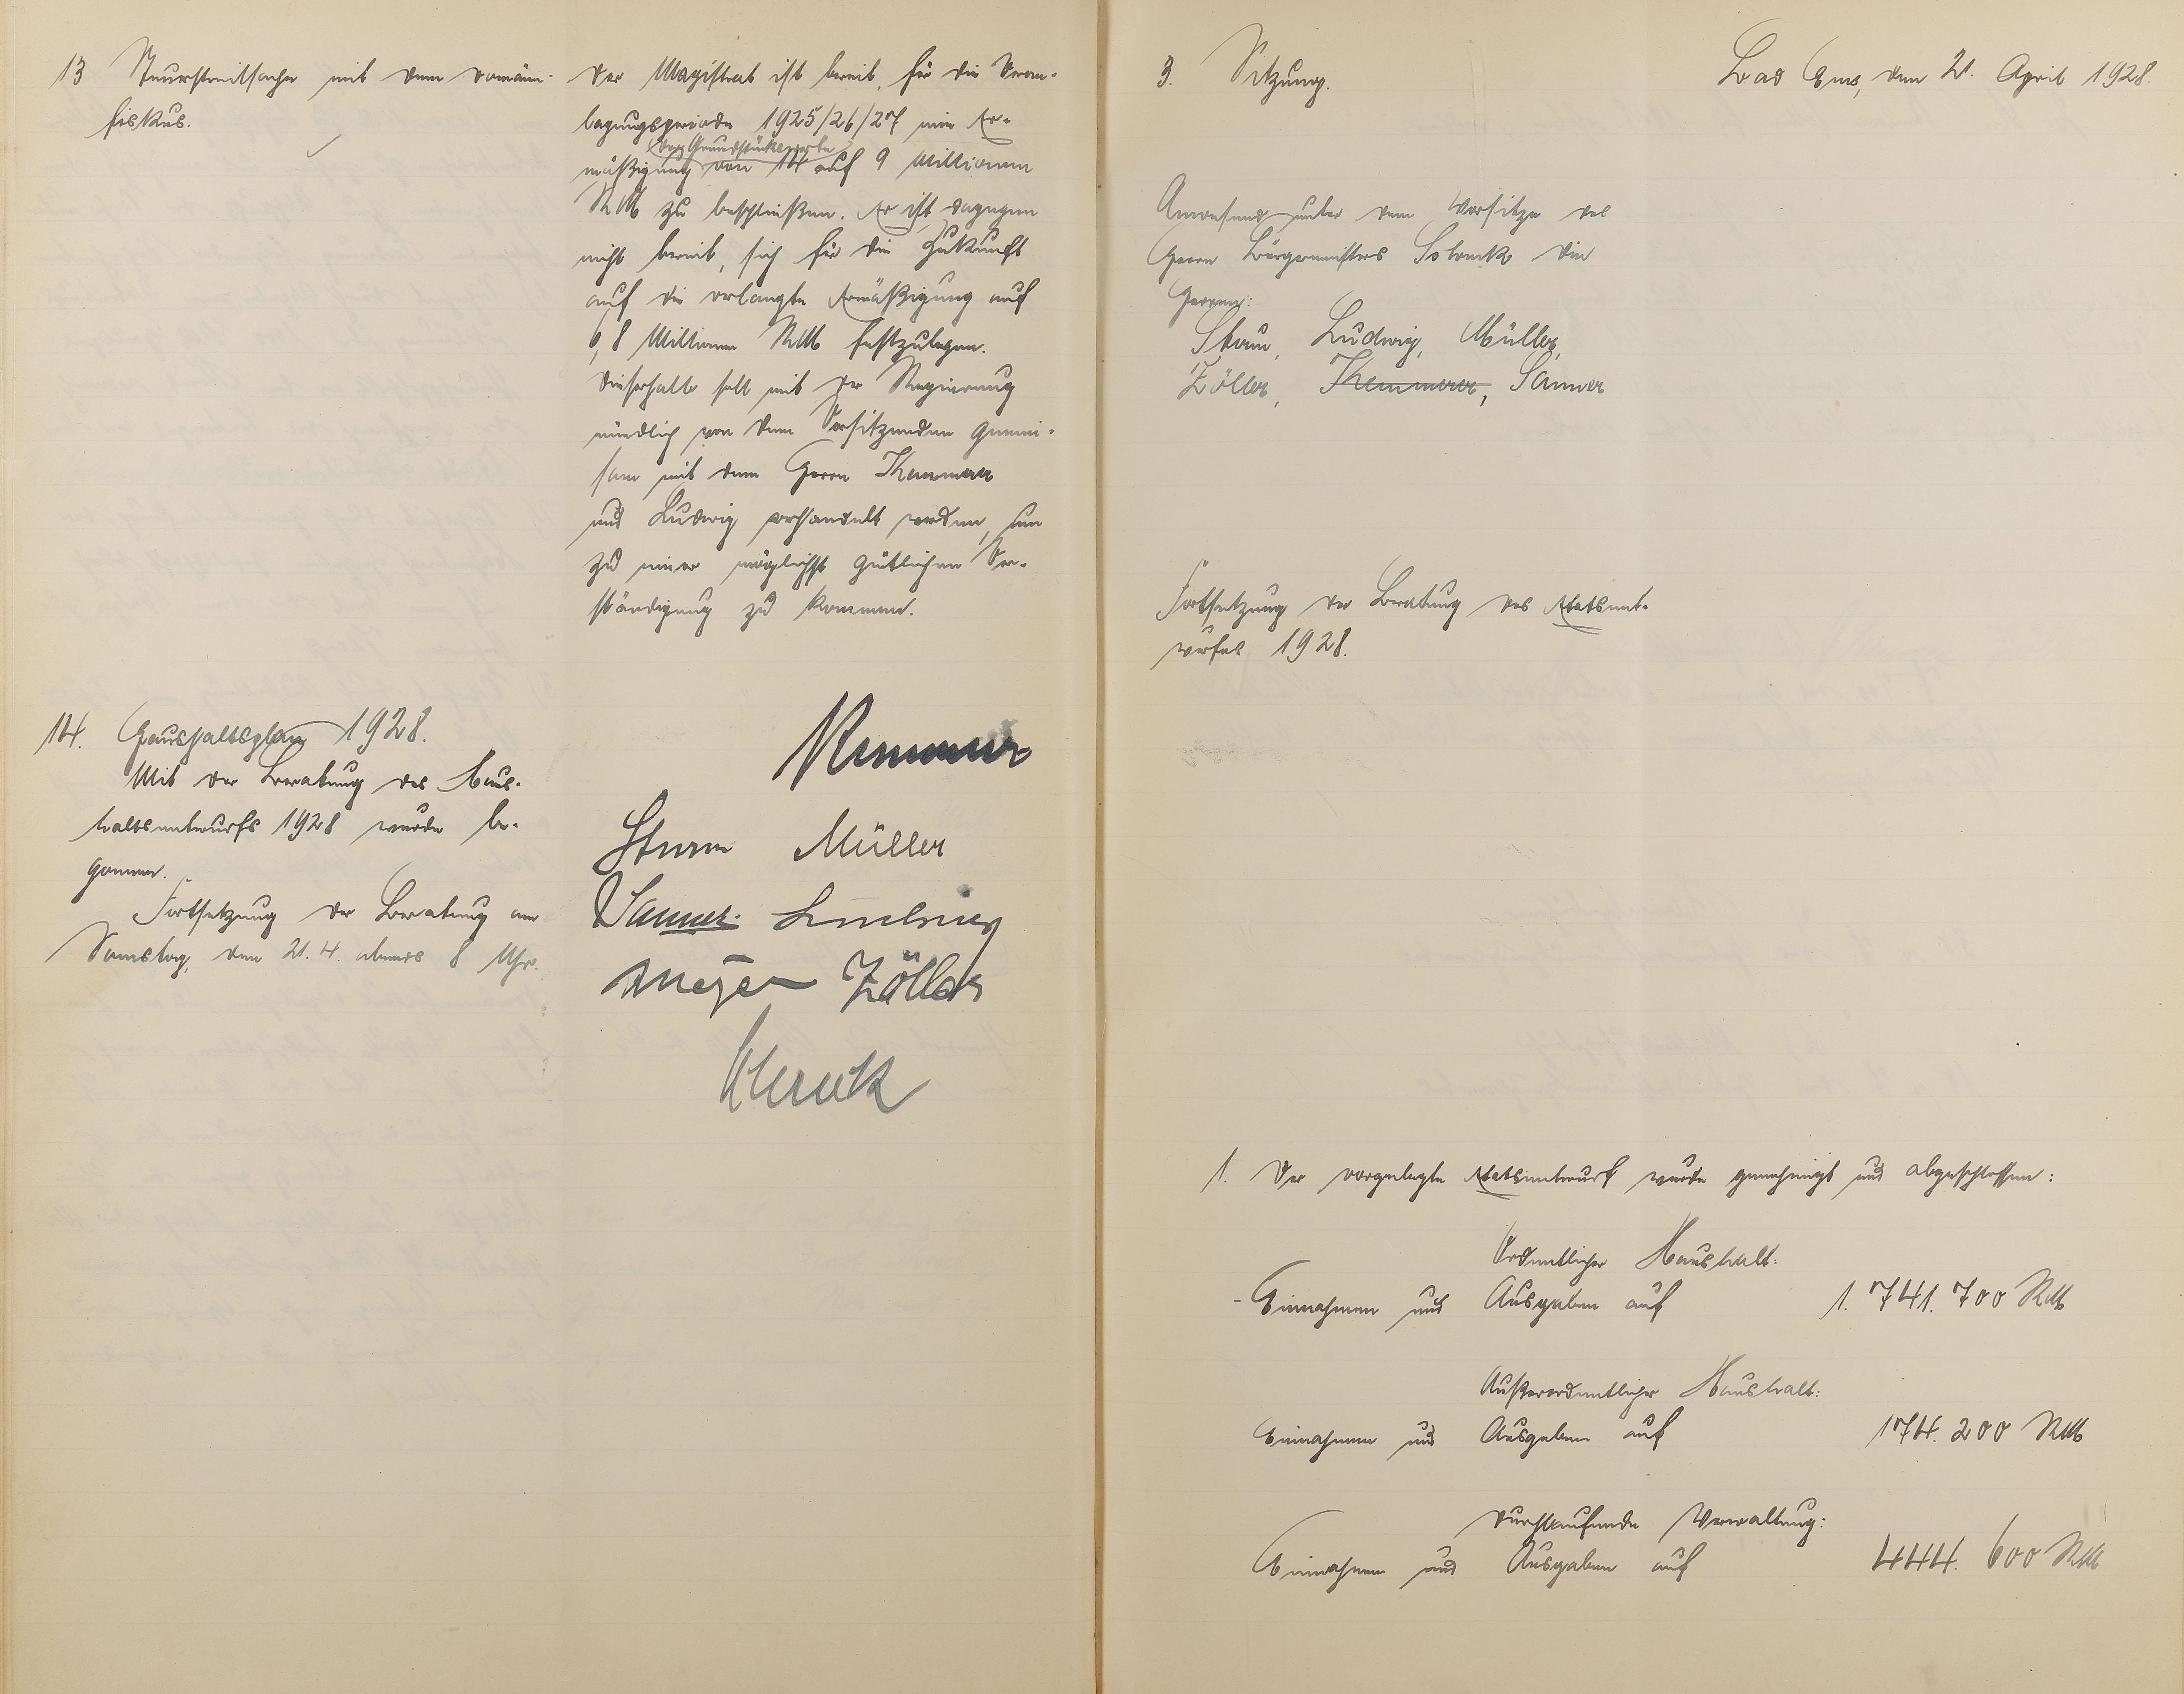 13 Steuerstreitsache mit dem Domänen-
fiskus.
Der Magistrat ist bereit, für die Veran-
lagungsperiode 1925/26/27 eine Er-
der Grundstückswerte
mäßigung von 14 auf 9 Millionen
RM zu beschließen. Er ist dagegen
nicht bereit, sich für die Zukunft
auf die verlangte Ermäßigung auf
6,8 Millionen RM festzulegen.
Dieserhalb soll mit der Regierung
mündlich von dem Vorsitzenden gemein-
sam mit dem Herrn Kemmerer
und Ludwig verhandelt werden, um
zu einer möglichst gütlichen Ver-
ständigung zu kommen.
14. Haushaltsplan 1928.
Mit der Beratung des Haus-
haltsentwurfs 1928 wurde be-
gonnen.
Fortsetzung der Beratung am
Samstag, den 21.4. abends 8 Uhr.
Müller
Sanner Ludwig
Meyer Zöller
3. Sitzung.
Bad Ems, den 21. April 1928.
Anwesend unter dem Vorsitze des
Herrn Bürgermeisters die
Herren:
Ludwig, Müller,
Zöller, Kemmerer, Sanner
Fortsetzung der Beratung des Etatsent-
wurfes 1928.
1. Der vorgelegte Etatsentwurf wurde genehmigt und abgeschlossen:
Ordentlicher Haushalt:
Einnahmen und Ausgaben auf 1.741.700 RM
Außerordentlicher Haushalt:
Einnahmen und Ausgaben auf 174.200 RM
Durchlaufende Verwaltung:
Einnahmen und Ausgaben auf 444.600 RM